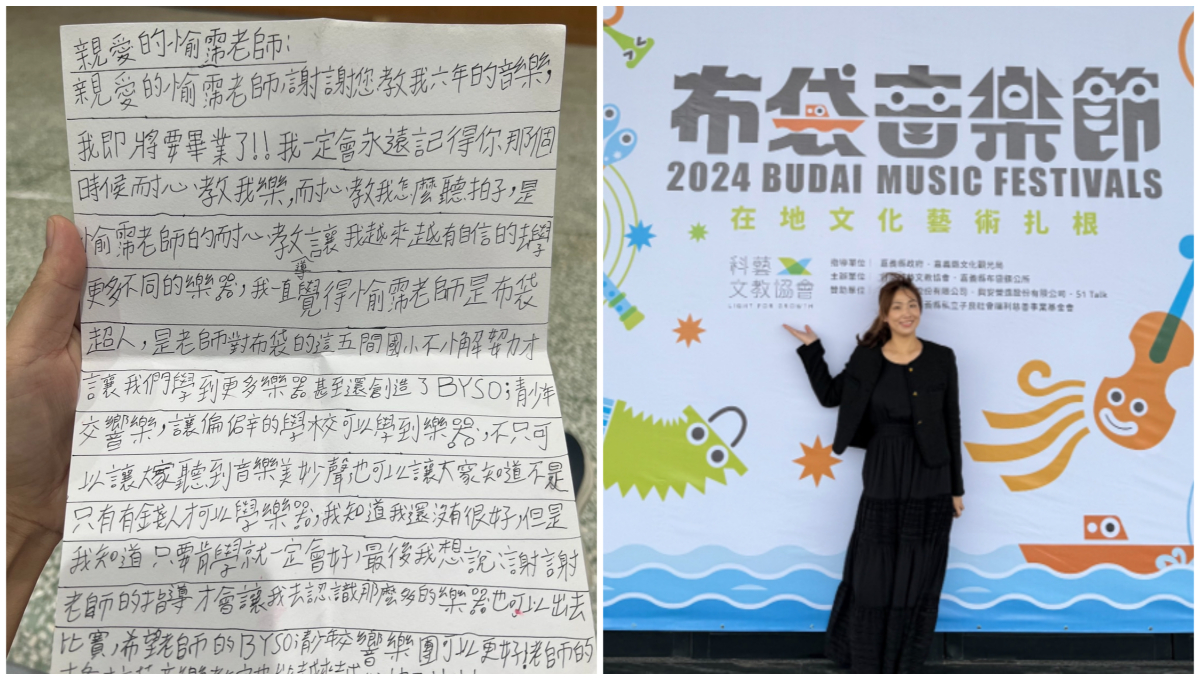 親愛的愉霈老師：
親愛的愉霈老師，謝謝您教我六年的音樂，
我即將要畢業了!!我一定會永遠記得你那個
時候耐心教我樂，耐心教我怎麼聽拍子，是
愉霈老師的耐心教讓我越來越有自信的去學
導
更多不同的樂器，我一直覺得愉霈老師是布袋
超人，是老師對布袋的這五間國小不小解努力才
讓我們學到更多樂器甚至還創造了BYSO;青少年
交響樂，讓偏僻的學校可以學到樂器，不只可
以讓大家聽到音樂美妙聲也可以讓大家知道不是
只有有金錢人才可以學樂器，我知道我還沒有很好，但是
我知道只要肯學就一定會好，最後我想說:謝謝
老師的指導才會讓我去認識那麼多的樂器也可以出去
比賽，希望老師的BYSO;青少年交響樂團可以更好!老師的
布袋音樂節
2024 BUDAI MUSIC FESTIVALS
在地文化藝術扎根
科藝
文教協會
LIGHT FOR GROWTH
指導單位｜嘉義縣政府、嘉義縣文化觀光局
主辦單位｜文教協會、嘉義縣布袋鎮公所
贊助單位｜股份有限公司、興安營造股份有限公司、51 Talk
義縣私立子良社會福利慈善事業基金會